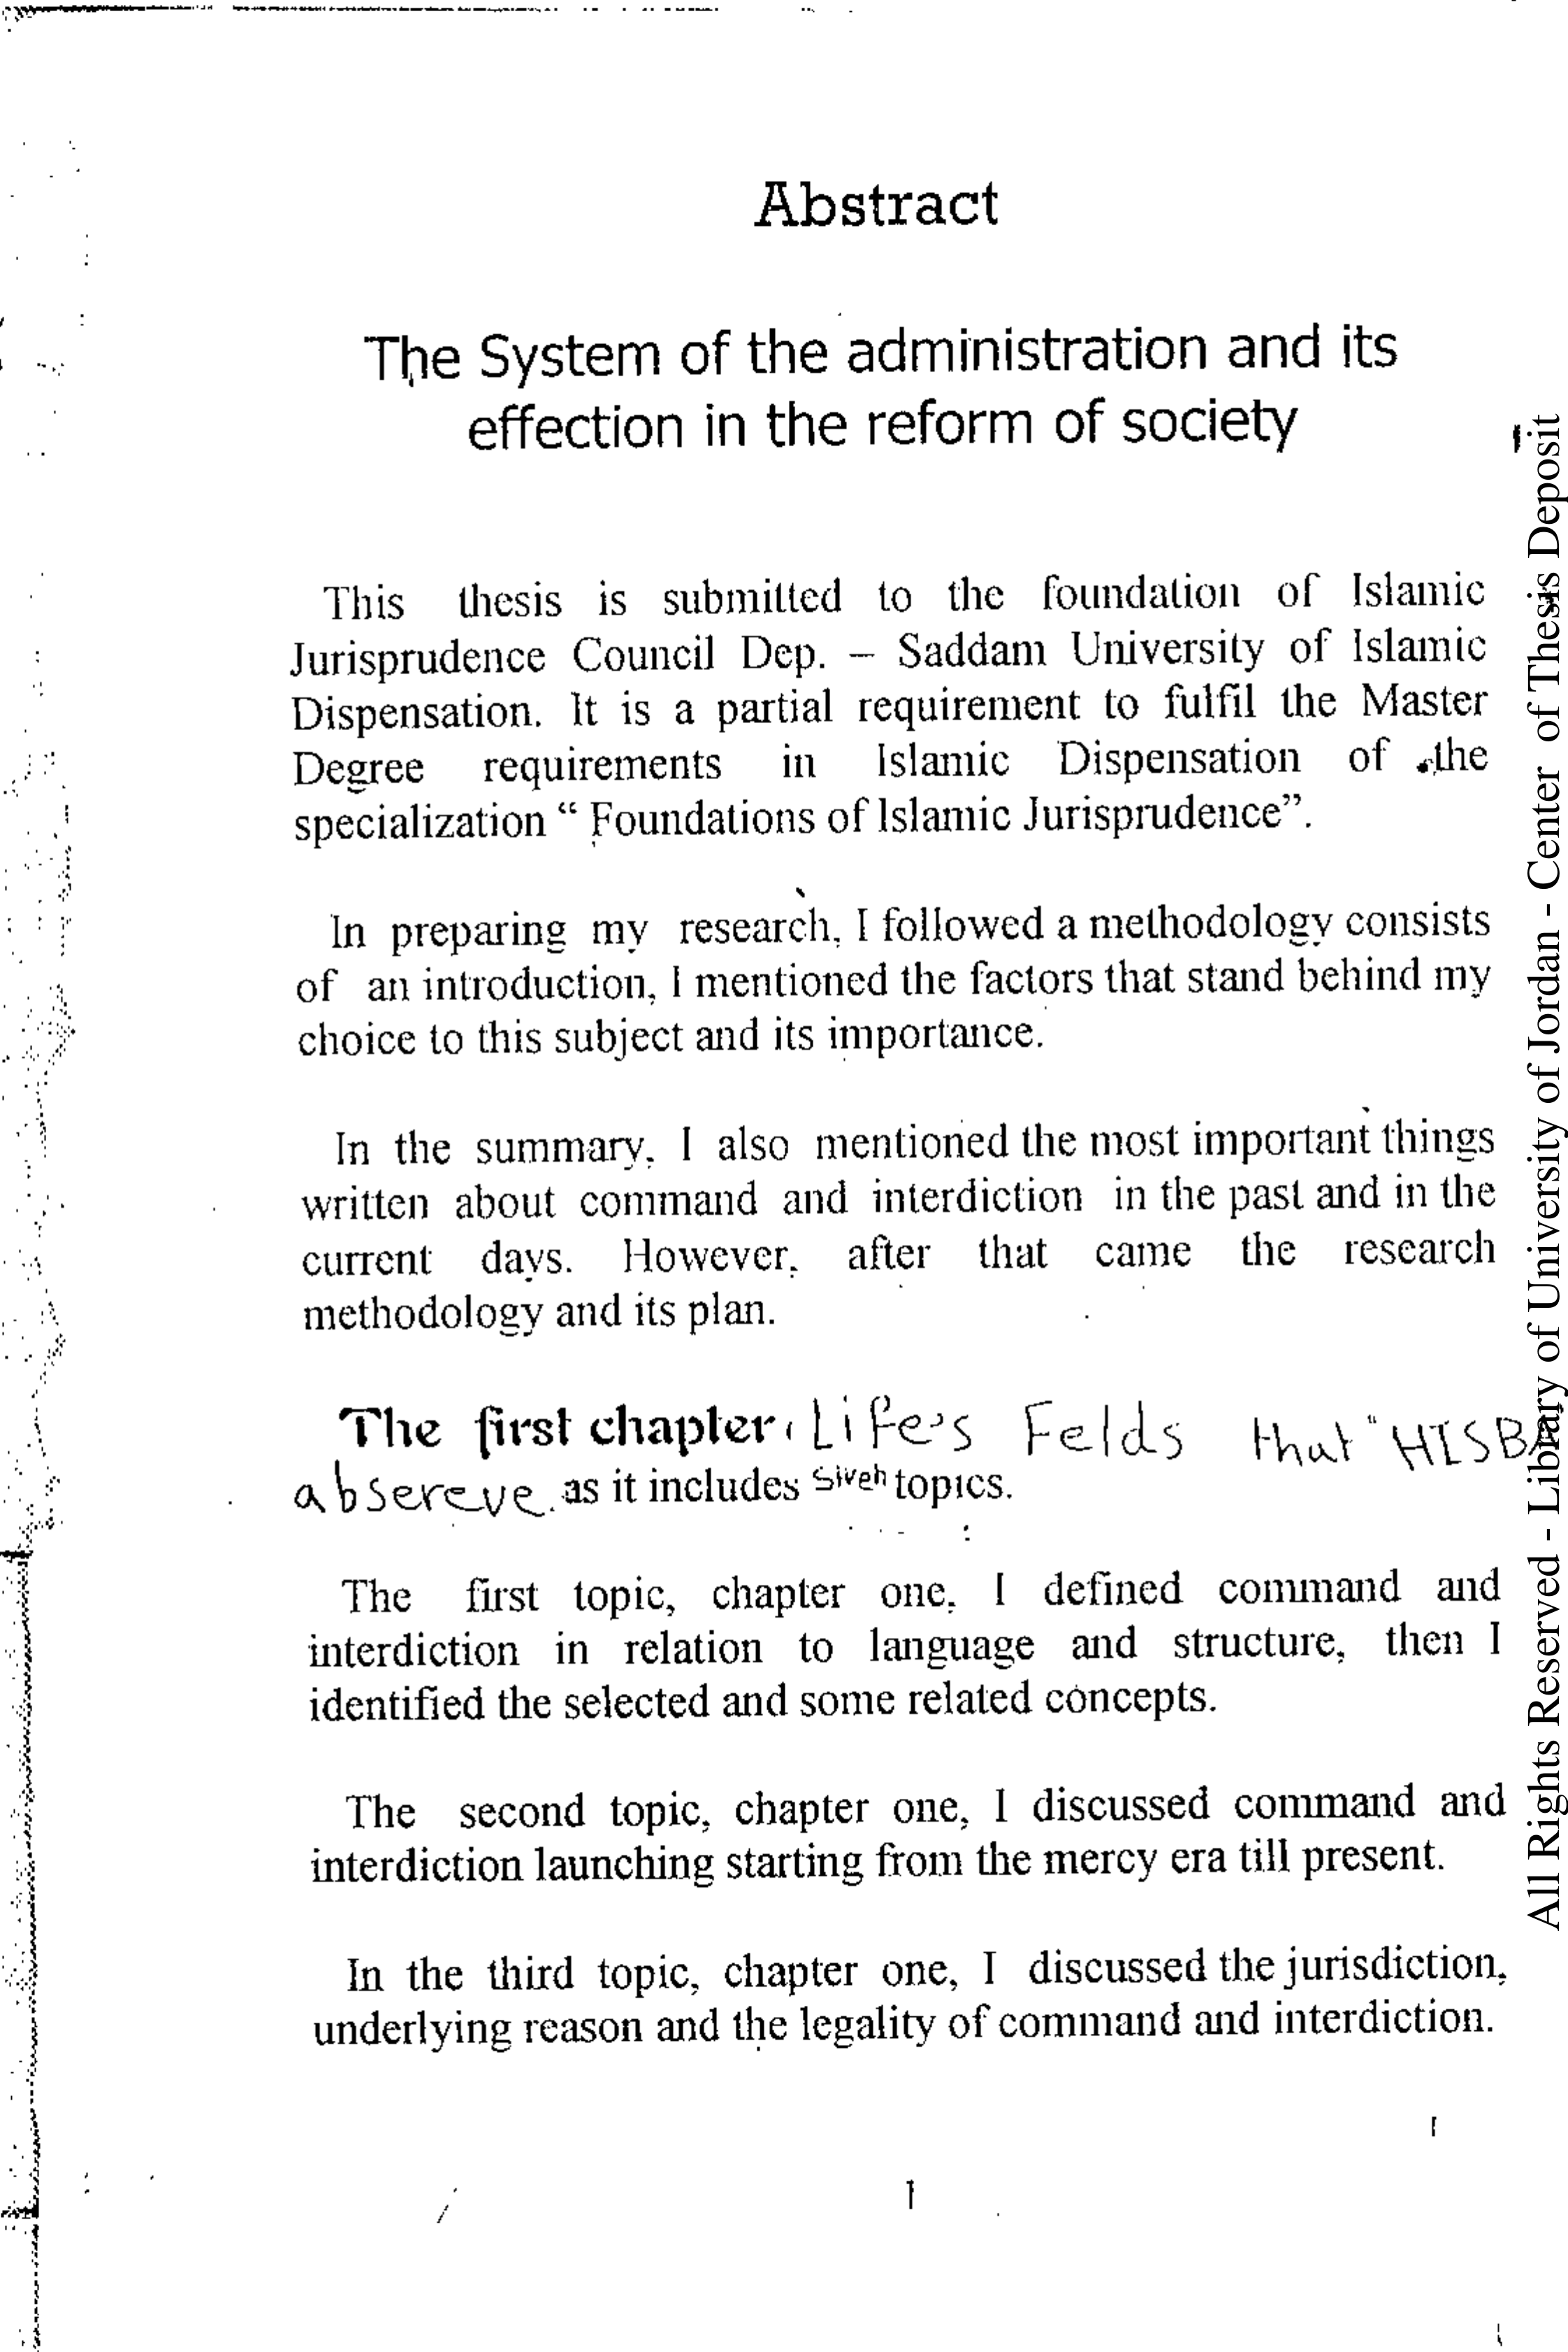 Abstract
The System of the administration and its
effection in the reform of society
This thesis is submitted to the foundation of Islamic
Jurisprudence Council Dep. – Saddam University of Islamic
Dispensation. It is a partial requirement to fulfil the Master
Degree requirements in Islamic Dispensation of the
specialization “ Foundations of Islamic Jurisprudence”.
In preparing my research, I followed a methodology consists
of an introduction, I mentioned the factors that stand behind my
choice to this subject and its importance.
In the summary, I also mentioned the most important things
written about command and interdiction in the past and in the
current days. However, after that came the research
methodology and its plan.
The first chapter, Life's Felds that "HISBA
absereve. as it includes siveh topics.
The first topic, chapter one, I defined command and
interdiction in relation to language and structure, then I
identified the selected and some related concepts.
The second topic, chapter one, I discussed command and
interdiction launching starting from the mercy era till present.
In the third topic, chapter one, I discussed the jurisdiction,
underlying reason and the legality of command and interdiction.
1
All Rights Reserved - Library of University of Jordan - Center of Thesis Deposit